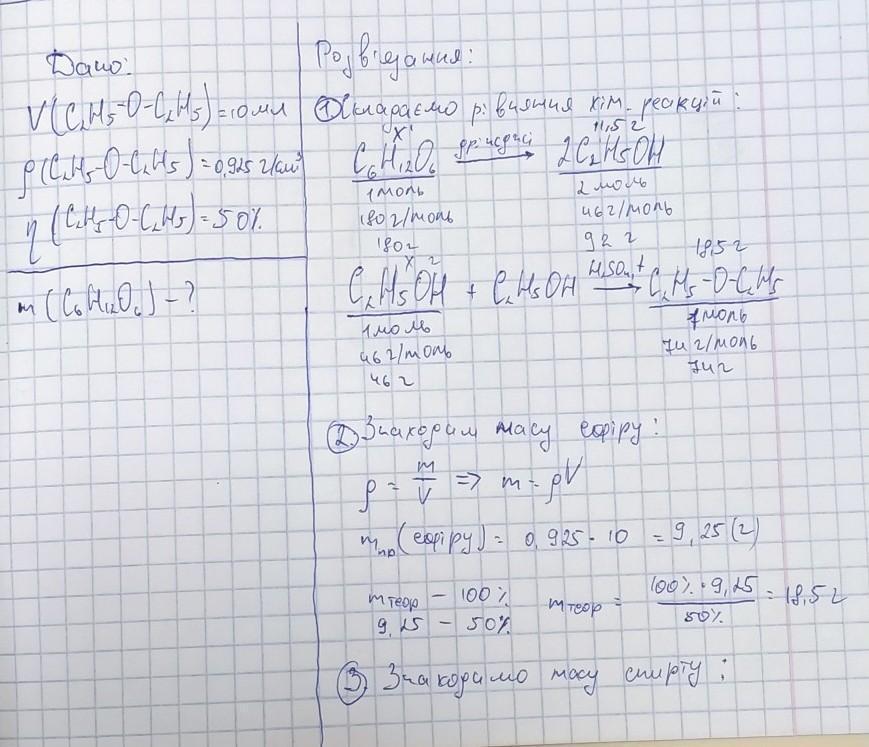 Дано:
V(C₂H₅-O-C₂H₅)=10мл
ρ(C₂H₅-O-C₂H₅)=0,925 г/см³
η(C₂H₅-O-C₂H₅)=50%
m(C₆H₁₂O₆)-?
Розв'язання:
① Складаємо рівняння хім. реакцій:
x' 11,5 г
C₆H₁₂O₆ дріжджі → 2C₂H₅OH
1моль 2моль
180г/моль 46г/моль
180г 92 г
x г 18,5 г
C₂H₅OH + C₂H₅OH H₂SO₄, t → C₂H₅-O-C₂H₅
1моль 1моль
46г/моль 74г/моль
46 г 74г
② Знаходим масу ефіру:
ρ = m/V => m = ρV
mпр(ефіру) = 0,925 · 10 = 9,25(г)
mтеор - 100% mтеор = 100%·9,25/50% = 18,5 г
9,25 - 50%
③ Знаходимо масу спирту: